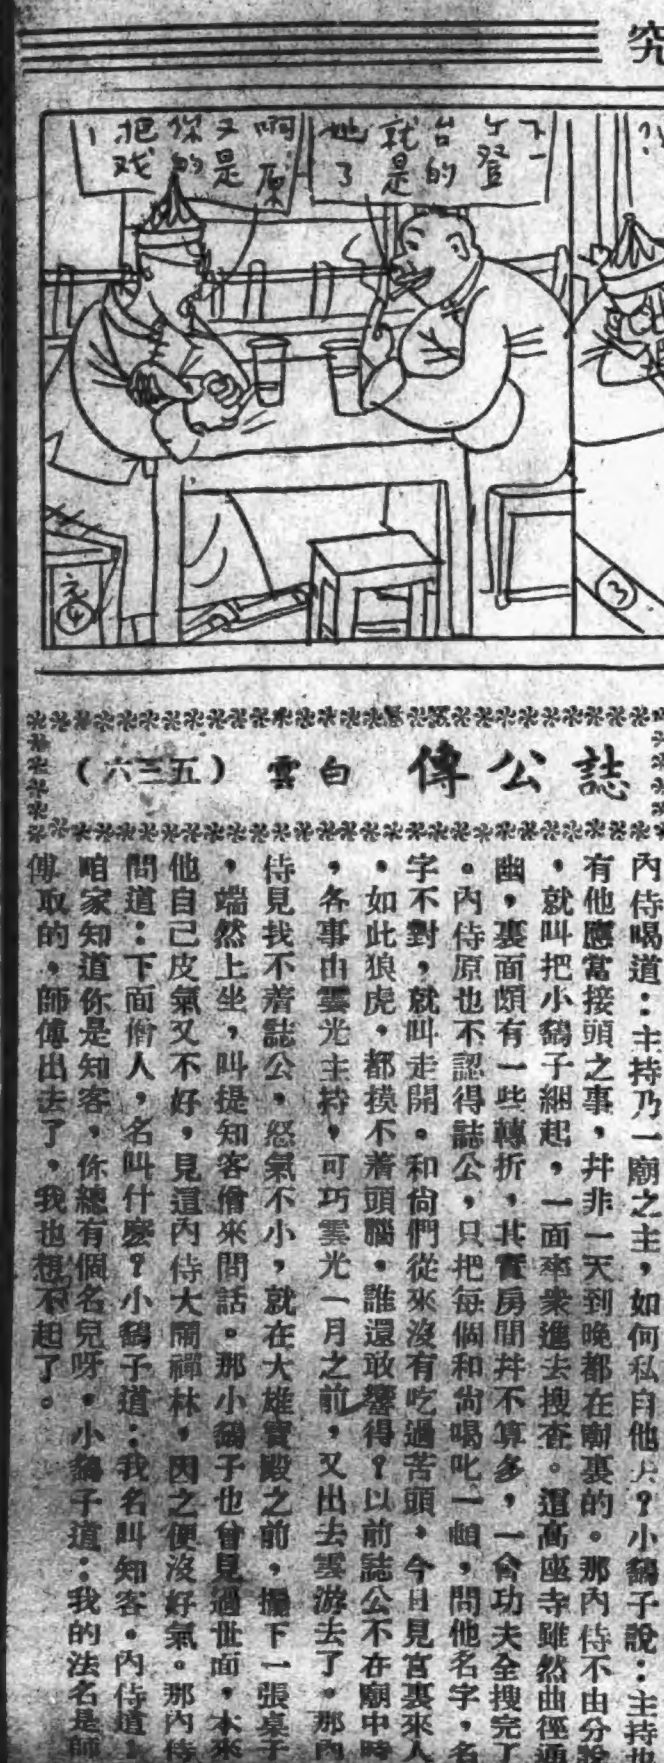 究
下
午登
台的
就是
她了
啊原
又是
你的
把戏
③
元④
誌公傳
白雲
（五三六）
內侍喝道：主持乃一廟之主，如何私自他出？小鷂子說：主持
有他應當接頭之事，幷非一天到晚都在廟裏的。那內侍不由分
，就叫把小鷂子綑起，一面率衆進去搜查。這高座寺雖然曲徑通
幽，裏面頗有一些轉折，其實房間幷不算多，一會功夫全搜完了
。內侍原也不認得誌公，只把每個和尙喝叱一頓，問他名字，名
字不對，就叫走開。和尙們從來沒有吃過苦頭，今日見宮裏來人
，如此狼虎，都摸不着頭腦。誰還敢響得？以前誌公不在廟中時
，各事由雲光主持，可巧雲光一月之前，又出去雲游去了。那內
侍見找不着誌公，怒氣不小，就在大雄寶殿之前，擺下一張桌子
，端然上坐，叫提知客僧來問話。那小鷂子也曾見過世面，本來
他自己皮氣又不好，見這內侍大鬧禪林，因之便沒好氣。那內侍
問道：下面僧人，名叫什麽？小鷂子道：我名叫知客。內侍道：
咱家知道你是知客，你總有個名兒呀，小鷂子道：我的法名是師
傅取的，師傅出去了，我也想不起了。